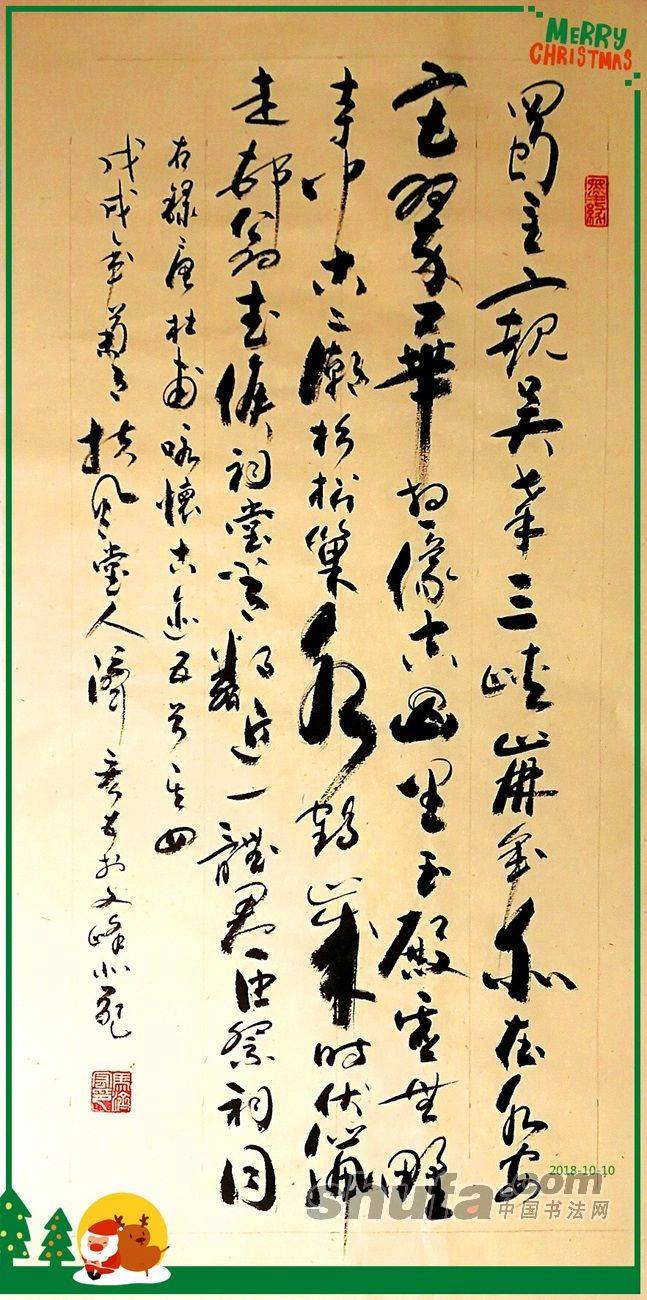 MERRY
CHRISTMAS
蜀主窺吴幸三峽崩年亦在永安
宫翠華想像空山里玉殿虚無野
寺中古廟杉松巢水鶴歲時伏臘
走邨翁武侯祠堂常鄰近一體君臣祭祀同
右録唐杜甫咏懷古迹五首其四
戊戌年菊月扶風堂人濤書於文峰
2018-10-10
shufa.com
中国书法网